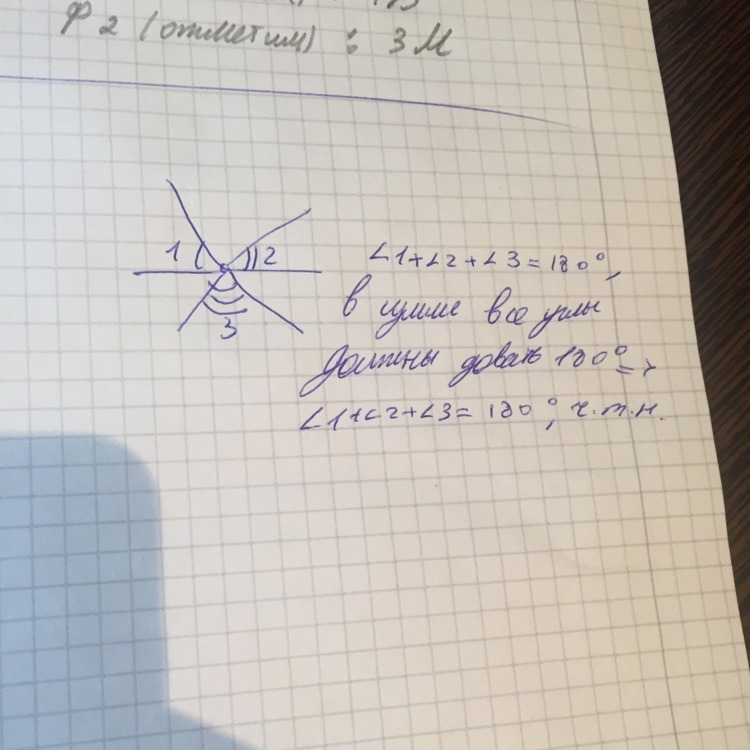 Ф 2 (отметим) : 3 М
1 2
3
∠1+∠2+∠3=180°,
в сумме все углы
должны довать 180° =>
∠1+∠2+∠3=180°, ч.т.н.